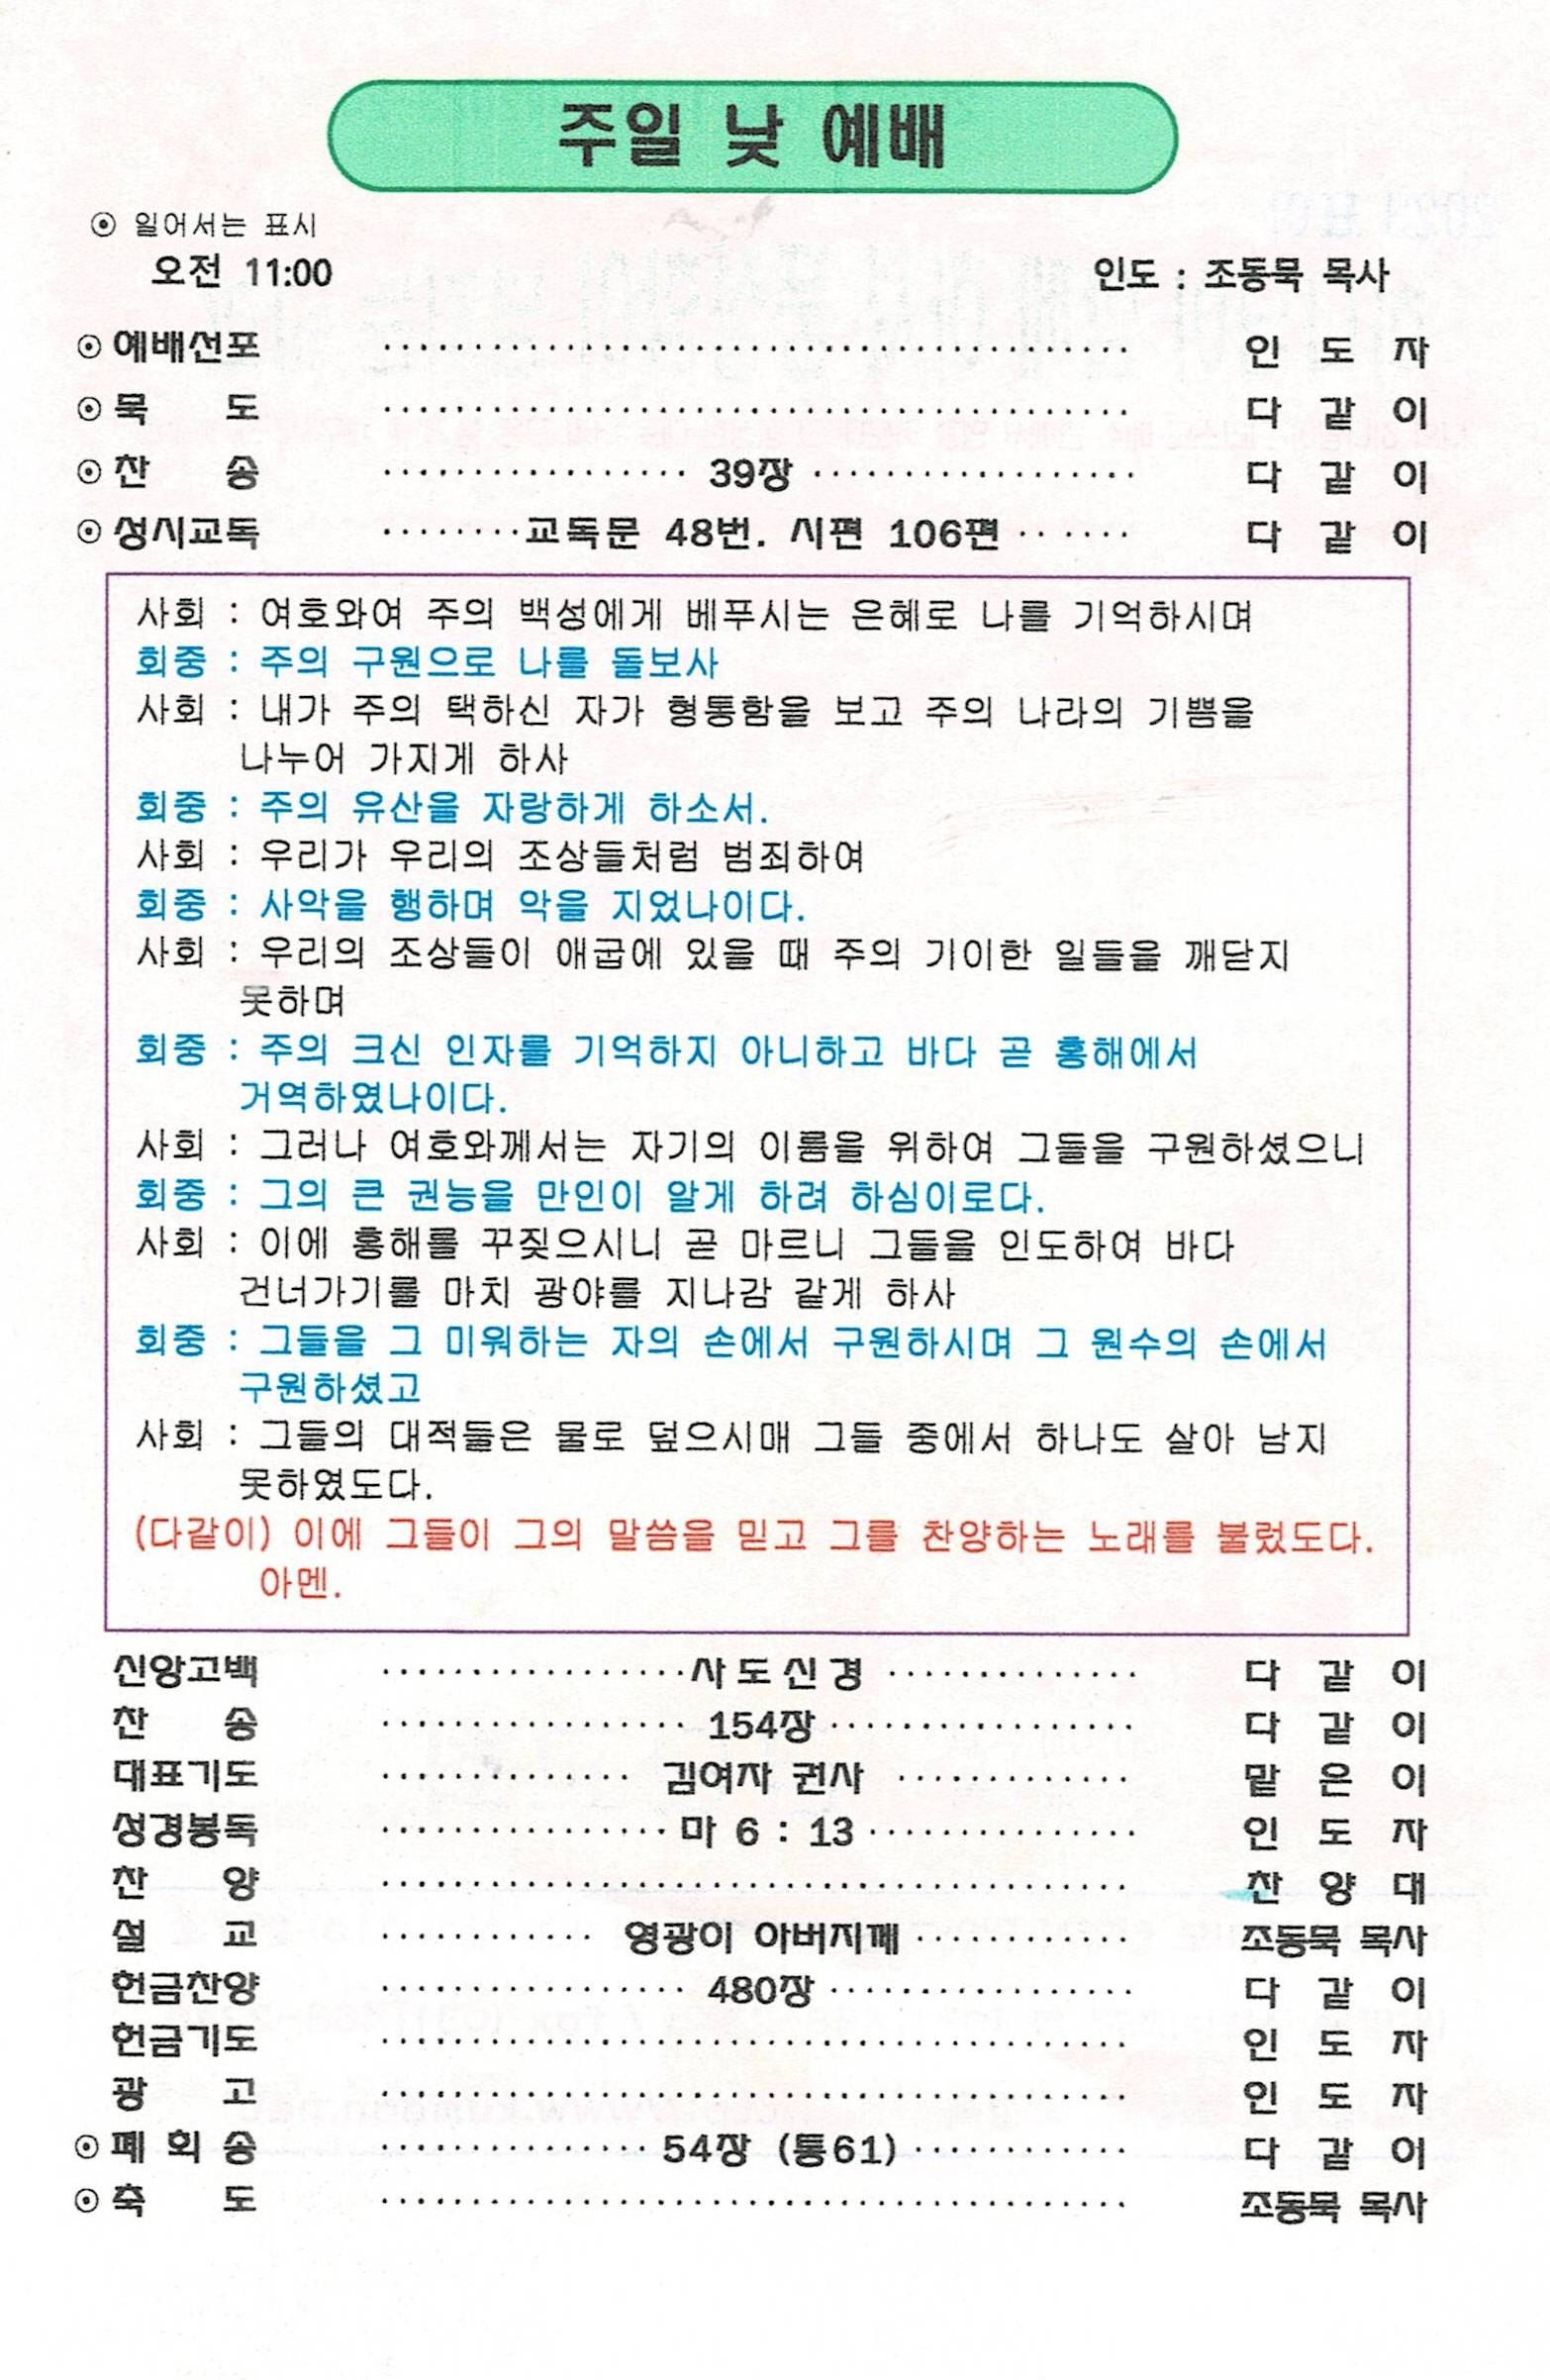 주일 낮 예배
⊙ 일어서는 표시
오전 11:00 인도 : 조동묵 목사
⊙ 예배선포 ········································· 인 도 자
⊙ 묵 도 ········································· 다 같 이
⊙ 찬 송 ················· 39장 ·················· 다 같 이
⊙ 성시교독 ········교독문 48번. 시편 106편 ·· ···· 다 같 이
사회 : 여호와여 주의 백성에게 베푸시는 은혜로 나를 기억하시며
회중 : 주의 구원으로 나를 돌보사
사회 : 내가 주의 택하신 자가 형통함을 보고 주의 나라의 기쁨을
나누어 가지게 하사
회중 : 주의 유산을 자랑하게 하소서.
사회 : 우리가 우리의 조상들처럼 범죄하여
회중 : 사악을 행하며 악을 지었나이다.
사회 : 우리의 조상들이 애굽에 있을 때 주의 기이한 일들을 깨닫지
못하며
회중 : 주의 크신 인자를 기억하지 아니하고 바다 곧 홍해에서
거역하였나이다.
사회 : 그러나 여호와께서는 자기의 이름을 위하여 그들을 구원하셨으니
회중 : 그의 큰 권능을 만인이 알게 하려 하심이로다.
사회 : 이에 홍해를 꾸짖으시니 곧 마르니 그들을 인도하여 바다
건너가기를 마치 광야를 지나감 같게 하사
회중 : 그들을 그 미워하는 자의 손에서 구원하시며 그 원수의 손에서
구원하셨고
사회 : 그들의 대적들은 물로 덮으시매 그들 중에서 하나도 살아 남지
못하였도다.
(다같이) 이에 그들이 그의 말씀을 믿고 그를 찬양하는 노래를 불렀도다.
아멘.
신앙고백 ·················사 도 신 경 ·············· 다 같 이
찬 송 ················· 154장 ················· 다 같 이
대표기도 ·············· 김여자 권사 ············· 맡 은 이
성경봉독 ················ 마 6 : 13 ··············· 인 도 자
찬 양 ········································· 찬 양 대
설 교 ············ 영광이 아버지께 ············ 조동묵 목사
헌금찬양 ················· 480장 ················· 다 같 이
헌금기도 ········································· 인 도 자
광 고 ········································· 인 도 자
⊙ 폐 회 송 ··············· 54장 (통61) ············ 다 같 이
⊙ 축 도 ········································· 조동묵 목사